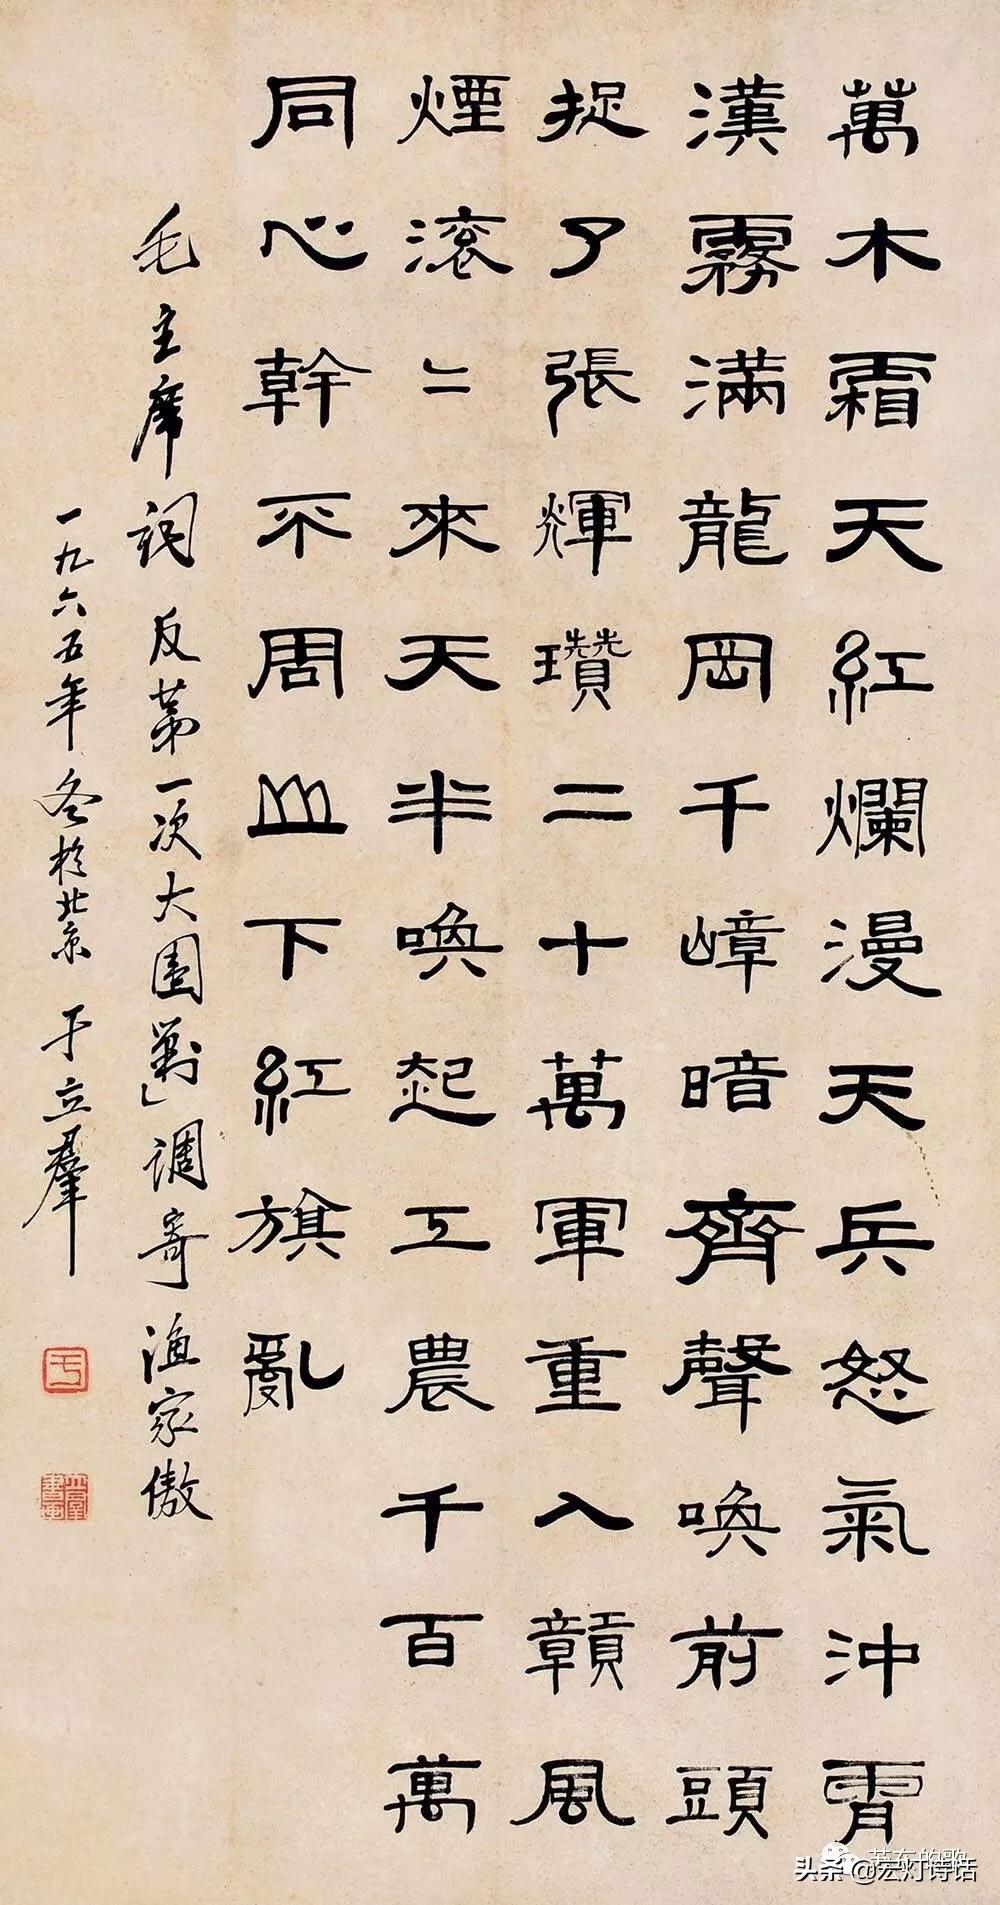 萬木霜天紅爛漫天兵怒氣沖霄
漢霧滿龍岡千嶂暗齊聲喚前頭
捉了張輝瓚二十萬軍重入贛風
煙滾〻來天半喚起工農千百萬
同心幹不周山下紅旗亂
毛主席詞 反苐一次大圍剿」調寄漁家傲
一九六五年冬於北京 于立羣
于
头条@宏灯诗话